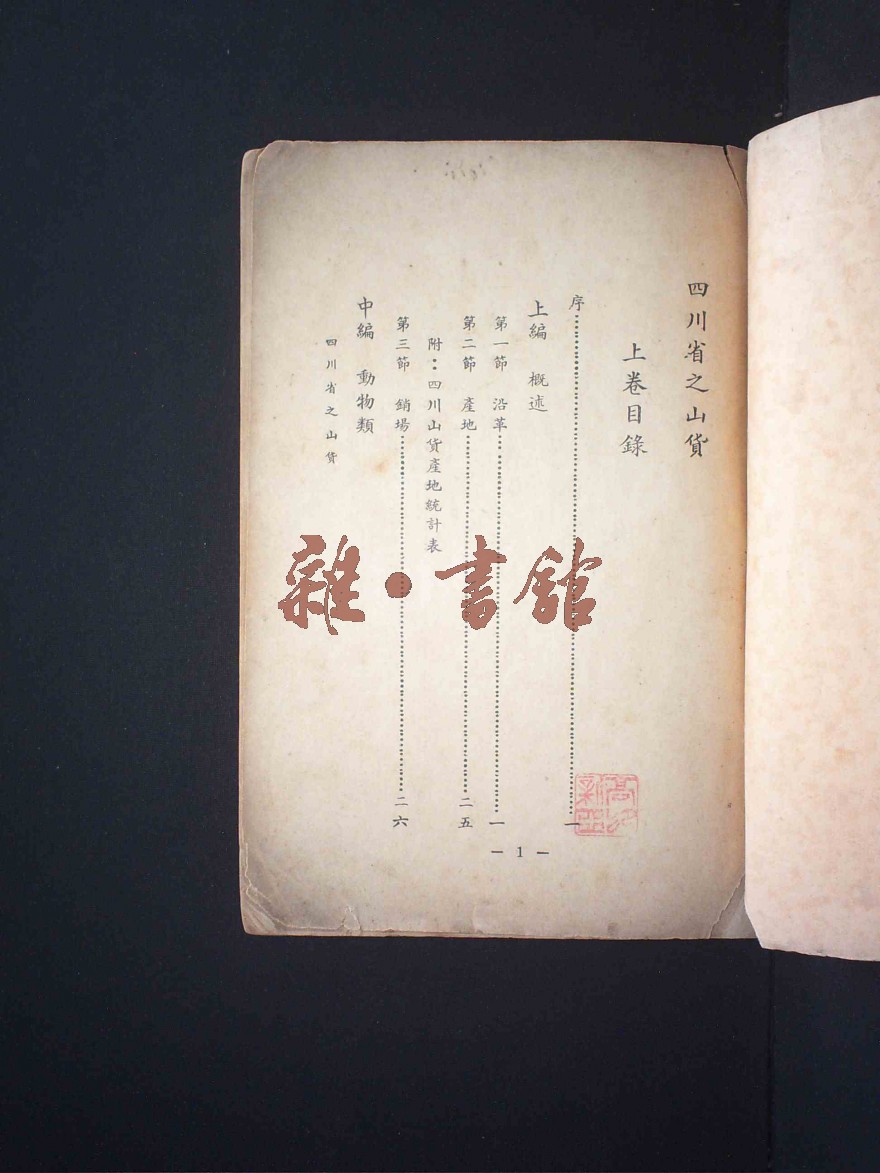 四川省之山貨
上卷目錄
序……………………………………一
上編　概述
第一節　沿革……………………………………一
第二節　產地……………………………………二五
附：四川山貨產地統計表
第三節　銷場……………………………………二六
中編　動物類
四川省之山貨
— 1 —
雜·書館